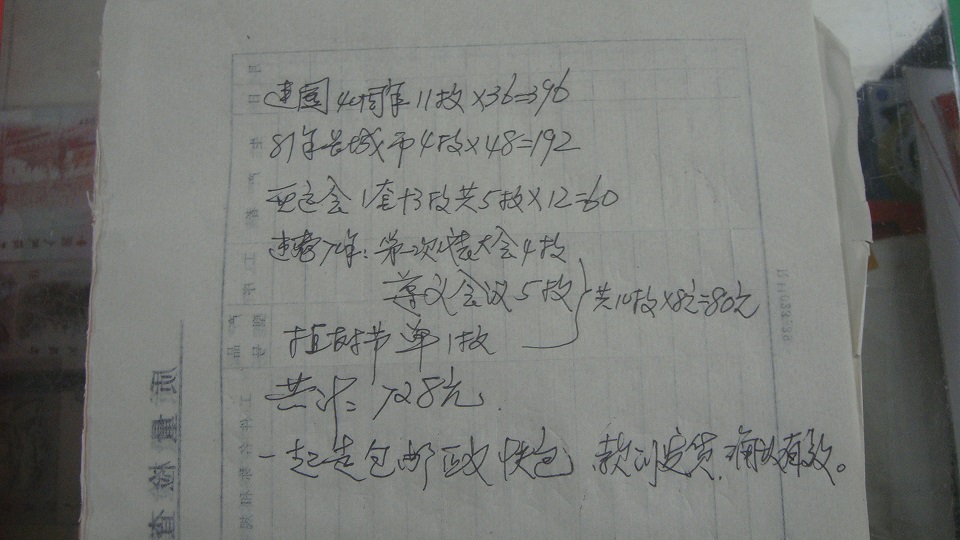 建国40周年11枚×36=396
81年长城币4枚×48=192
亚运会1套+3枚共5枚×12=60
建党70年:第一次代表大会4枚
遵义会议5枚
植树节单1枚
共10枚×8元=80元
共计: 728元.
一起走包邮 快包 款到发货,确认有效。